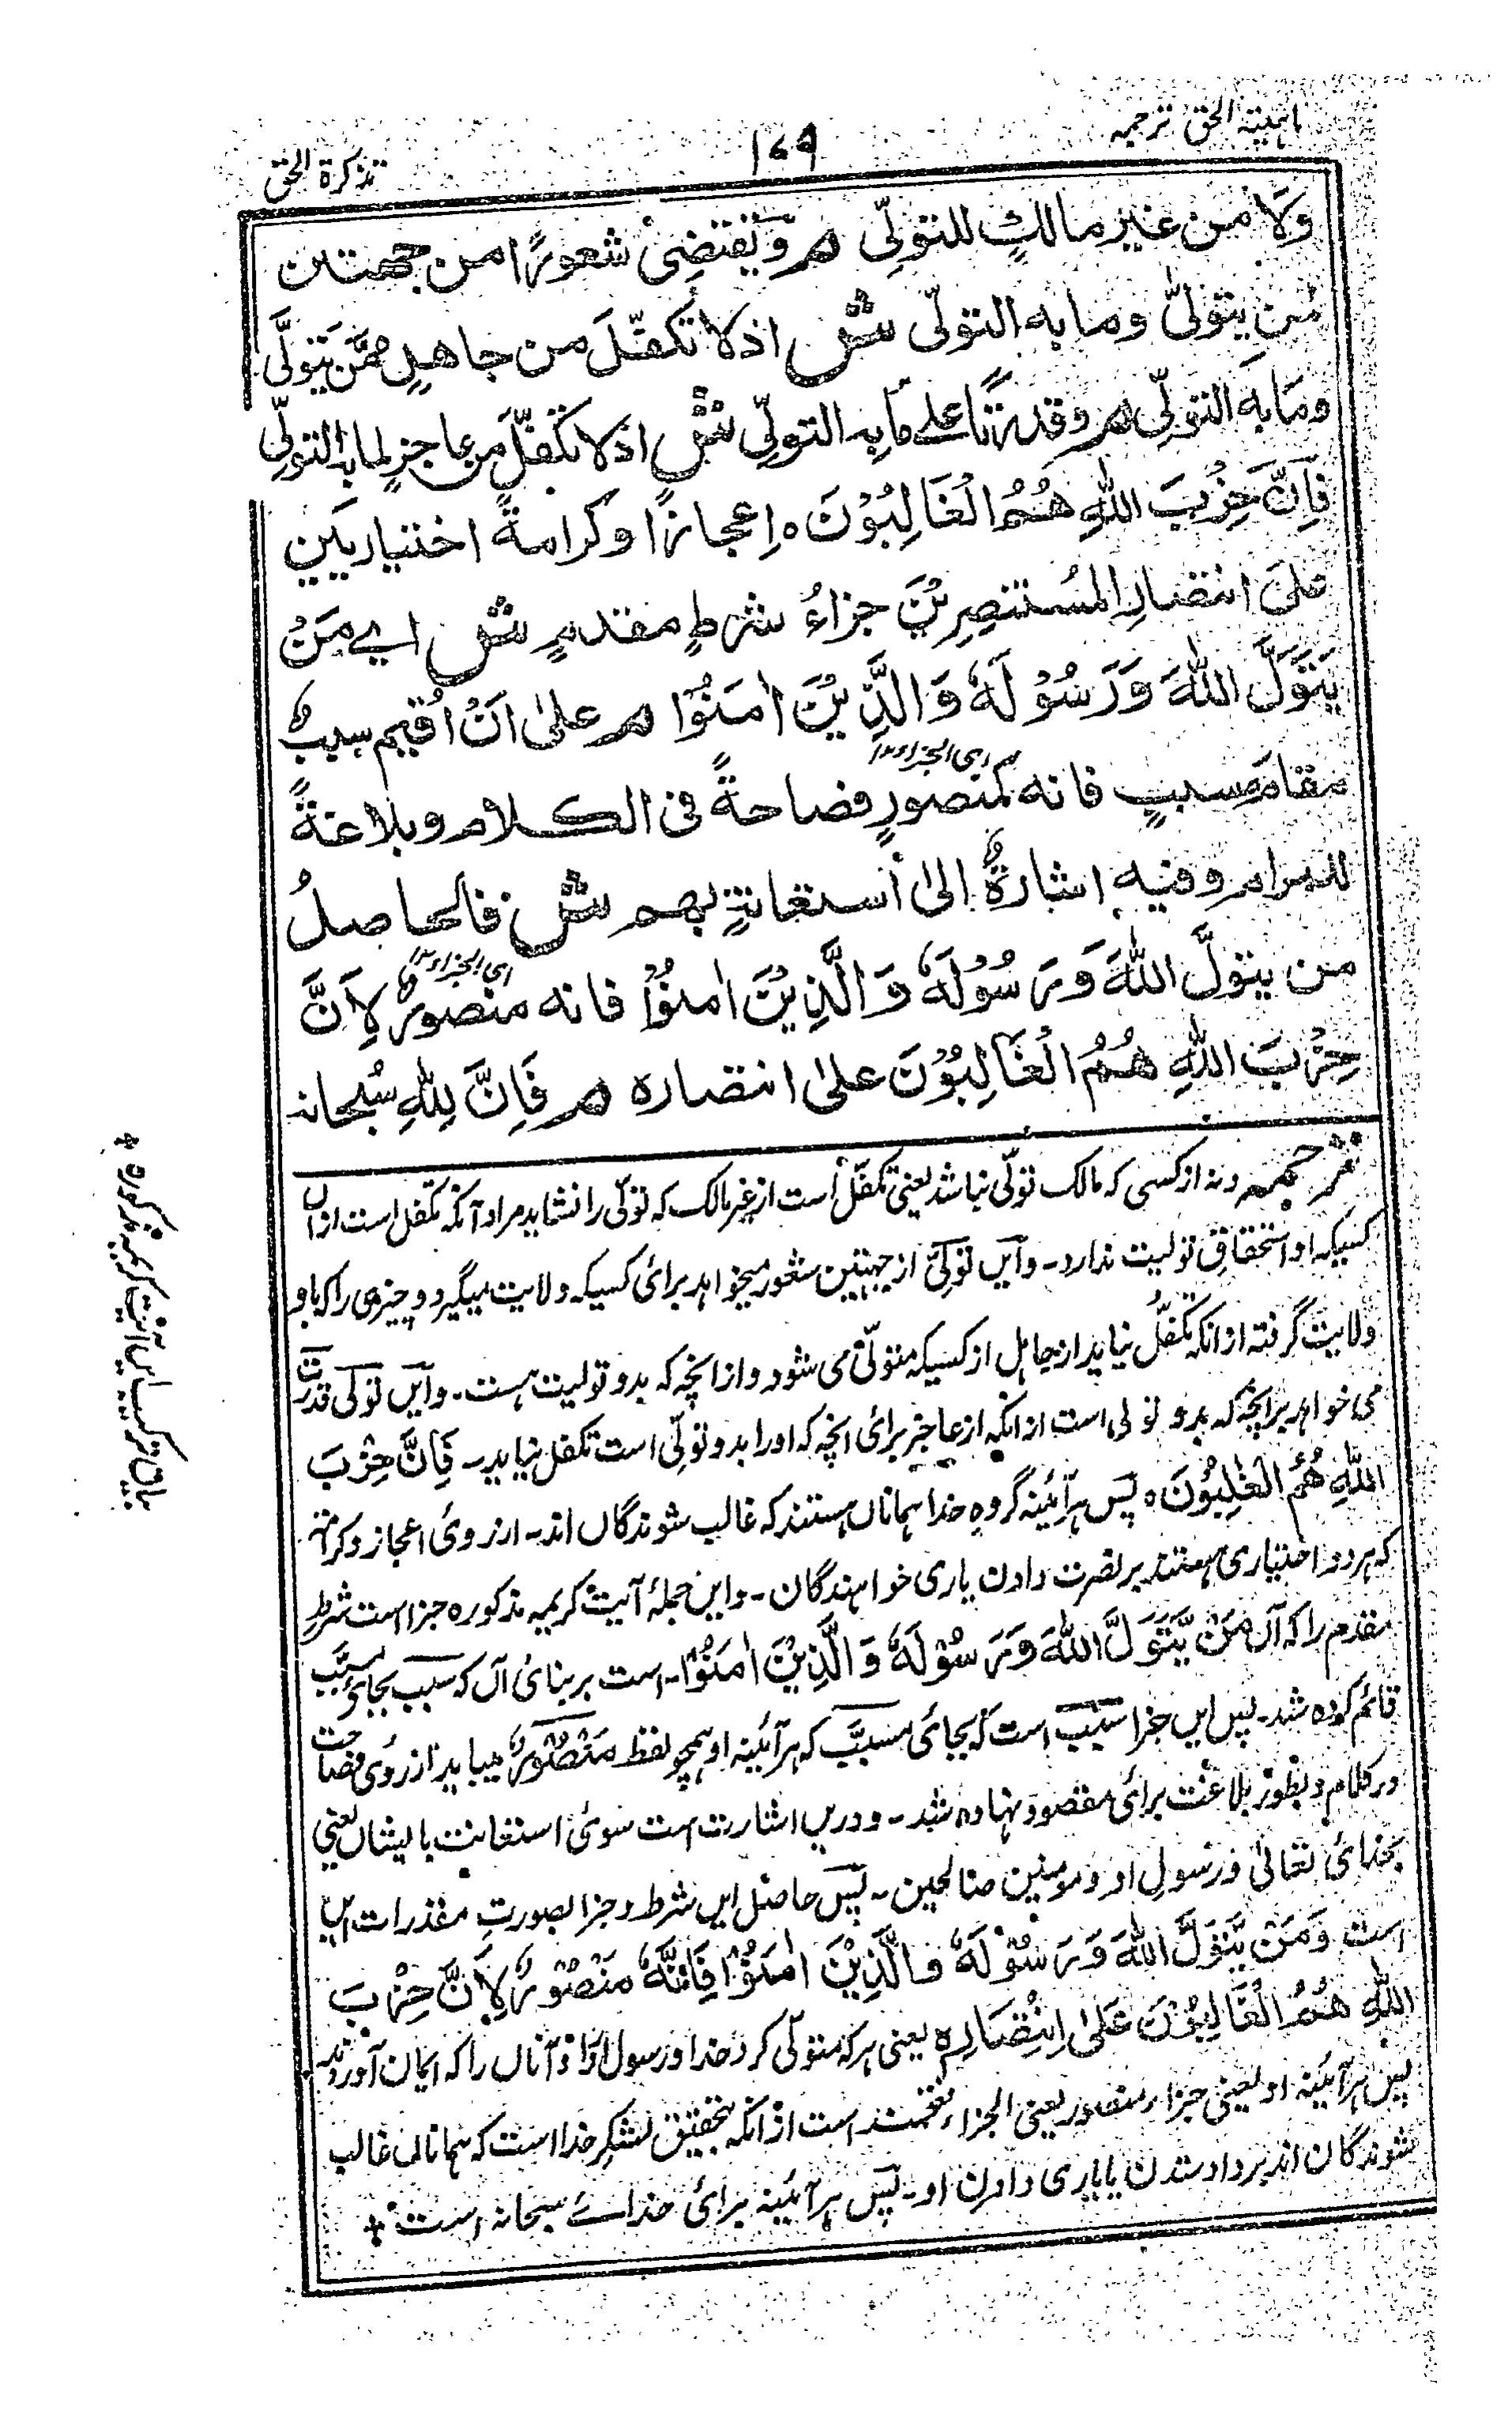 ماہیتہ الحق ترجمہ
۱۷۹
تذکرۃ الحق
ولا من غیر مالکٍ للتولّی م ویقتضی شعورًا من جهتین
من یتولّٰی وما به التولّی ش اذلا تکفّلَ من جاهلٍ ممّن یتولَّی
وما به التولّی م وقدرتًا علے ما به التولّی ش اذلا تکفّلَ من عاجزٍ لما به التولّی
فَاِنَّ حِزْبَ اللّٰهِ هُمُ الْغَالِبُوْنَ ه اِعجازًا وکرامةً اختیاریَین
علیَ انتصارِ المُستنصِرِیْنَ جزاءُ شرطٍ مقدمٍ ش اے مَنْ
یَتَوَلَّ اللّٰهَ وَرَسُوْلَهٗ وَالَّذِیْنَ اٰمَنُوْا م علیٰ اَنْ اُقیم سببٌ
مقام مسببٍ فانه ای الجزاء ۱۲ کمنصورٍ فصاحةً فی الکلام وبلاغةً
للمرام وفیه اشارةٌ الیٰ استغانةٍ بهم ش فالحاصلُ
من یتولَّ اللّٰهَ وَرَسُوْلَهٗ وَالَّذِیْنَ اٰمنُوْا فانه ای الجزاء ۱۲ منصورٌ لِاَنَّ
حِزْبَ اللّٰهِ هُمُ الْغَالِبُوْنَ علیٰ انتصاره م فَاِنَّ لِلّٰهِ سُبحانه
ترجمہ ونہ از کسی کہ مالک تولّی نباشد یعنی تکفّل است از غیر مالک کہ تولّی را نشاید مراد آنکہ تکفل است ازاں
کسیکہ او استحقاقِ تولیت ندارد۔ وایں تولّی از جہتین شعور میخواہد برائ کسیکہ ولایت میگیرد و چیزی را کہ باو
ولایت گرفتہ از انکہ تکفّل نیاید از جاہل از کسیکہ متولّی می شود و ازانچہ کہ بدو تولیت ہست۔ وایں تولّی قدرت
می خواہد برانچہ کہ بدو تولی است از انکہ از عاجز برائ انچہ کہ او را بدو تولّی است تکفل نیاید۔ فَاِنَّ حِزْبَ
اللّٰهِ هُمُ الْغٰلِبُوْنَ ه پس ہر آئینہ گروہِ خدا ہماناں ہستند کہ غالب شوندگاں اند۔ از روئ اعجاز و کرامت
کہ ہر دو اختیاری ہستند بر نصرت دادن یاری خواہندگان۔ واین جملۂ آیت کریمہ مذکورہ جزا است شرطِ
مقدم را کہ آں مَنْ یَّتَوَلَّ اللّٰهَ وَرَسُوْلَهٗ وَالَّذِیْنَ اٰمَنُوْا۔ است بر بنائ آں کہ سبب بجائ مسبَّب
قائم کردہ شد۔ پس ایں جزا سبب است کہ بجائ مسبَّب کہ ہر آئینہ او ہمچو لفظ مَنْصُوْرٌ میباید از روئ فصاحت
در کلام و بطور بلاغت برائ مقصود نہادہ شد۔ و دریں اشارت است سوئ استغانت بایشاں یعنی
بخدائ تعالیٰ و رسولِ او و مومنین صالحین۔ پس حاصل ایں شرط و جزا بصورتِ مقدرات ایں
است وَمَنْ یَّتَوَلَّ اللّٰهَ وَرَسُوْلَهٗ وَالَّذِیْنَ اٰمَنُوْا فَاِنَّهٗ مَنْصُوْرٌ لِاَنَّ حِزْبَ
اللّٰهِ هُمُ الْغَالِبُوْنَ عَلیٰ اِنْتِصَارِهٖ یعنی ہر کہ متولّی کرد خدا و رسول او را و آناں را کہ ایمان آوردند
پس ہر آئینہ او یعنی جزاء منصور یعنی الجزاء است از انکہ بتحقیق لشکرِ خدا است کہ ہماناں غالب
شوندگان اند بر داد ستدن یا یاری دادن او۔ پس ہر آئینہ برائ خدائے سبحانہ است ⁘
بیان ترکیب ایں آیت کریمہ مذکورہ ⁘